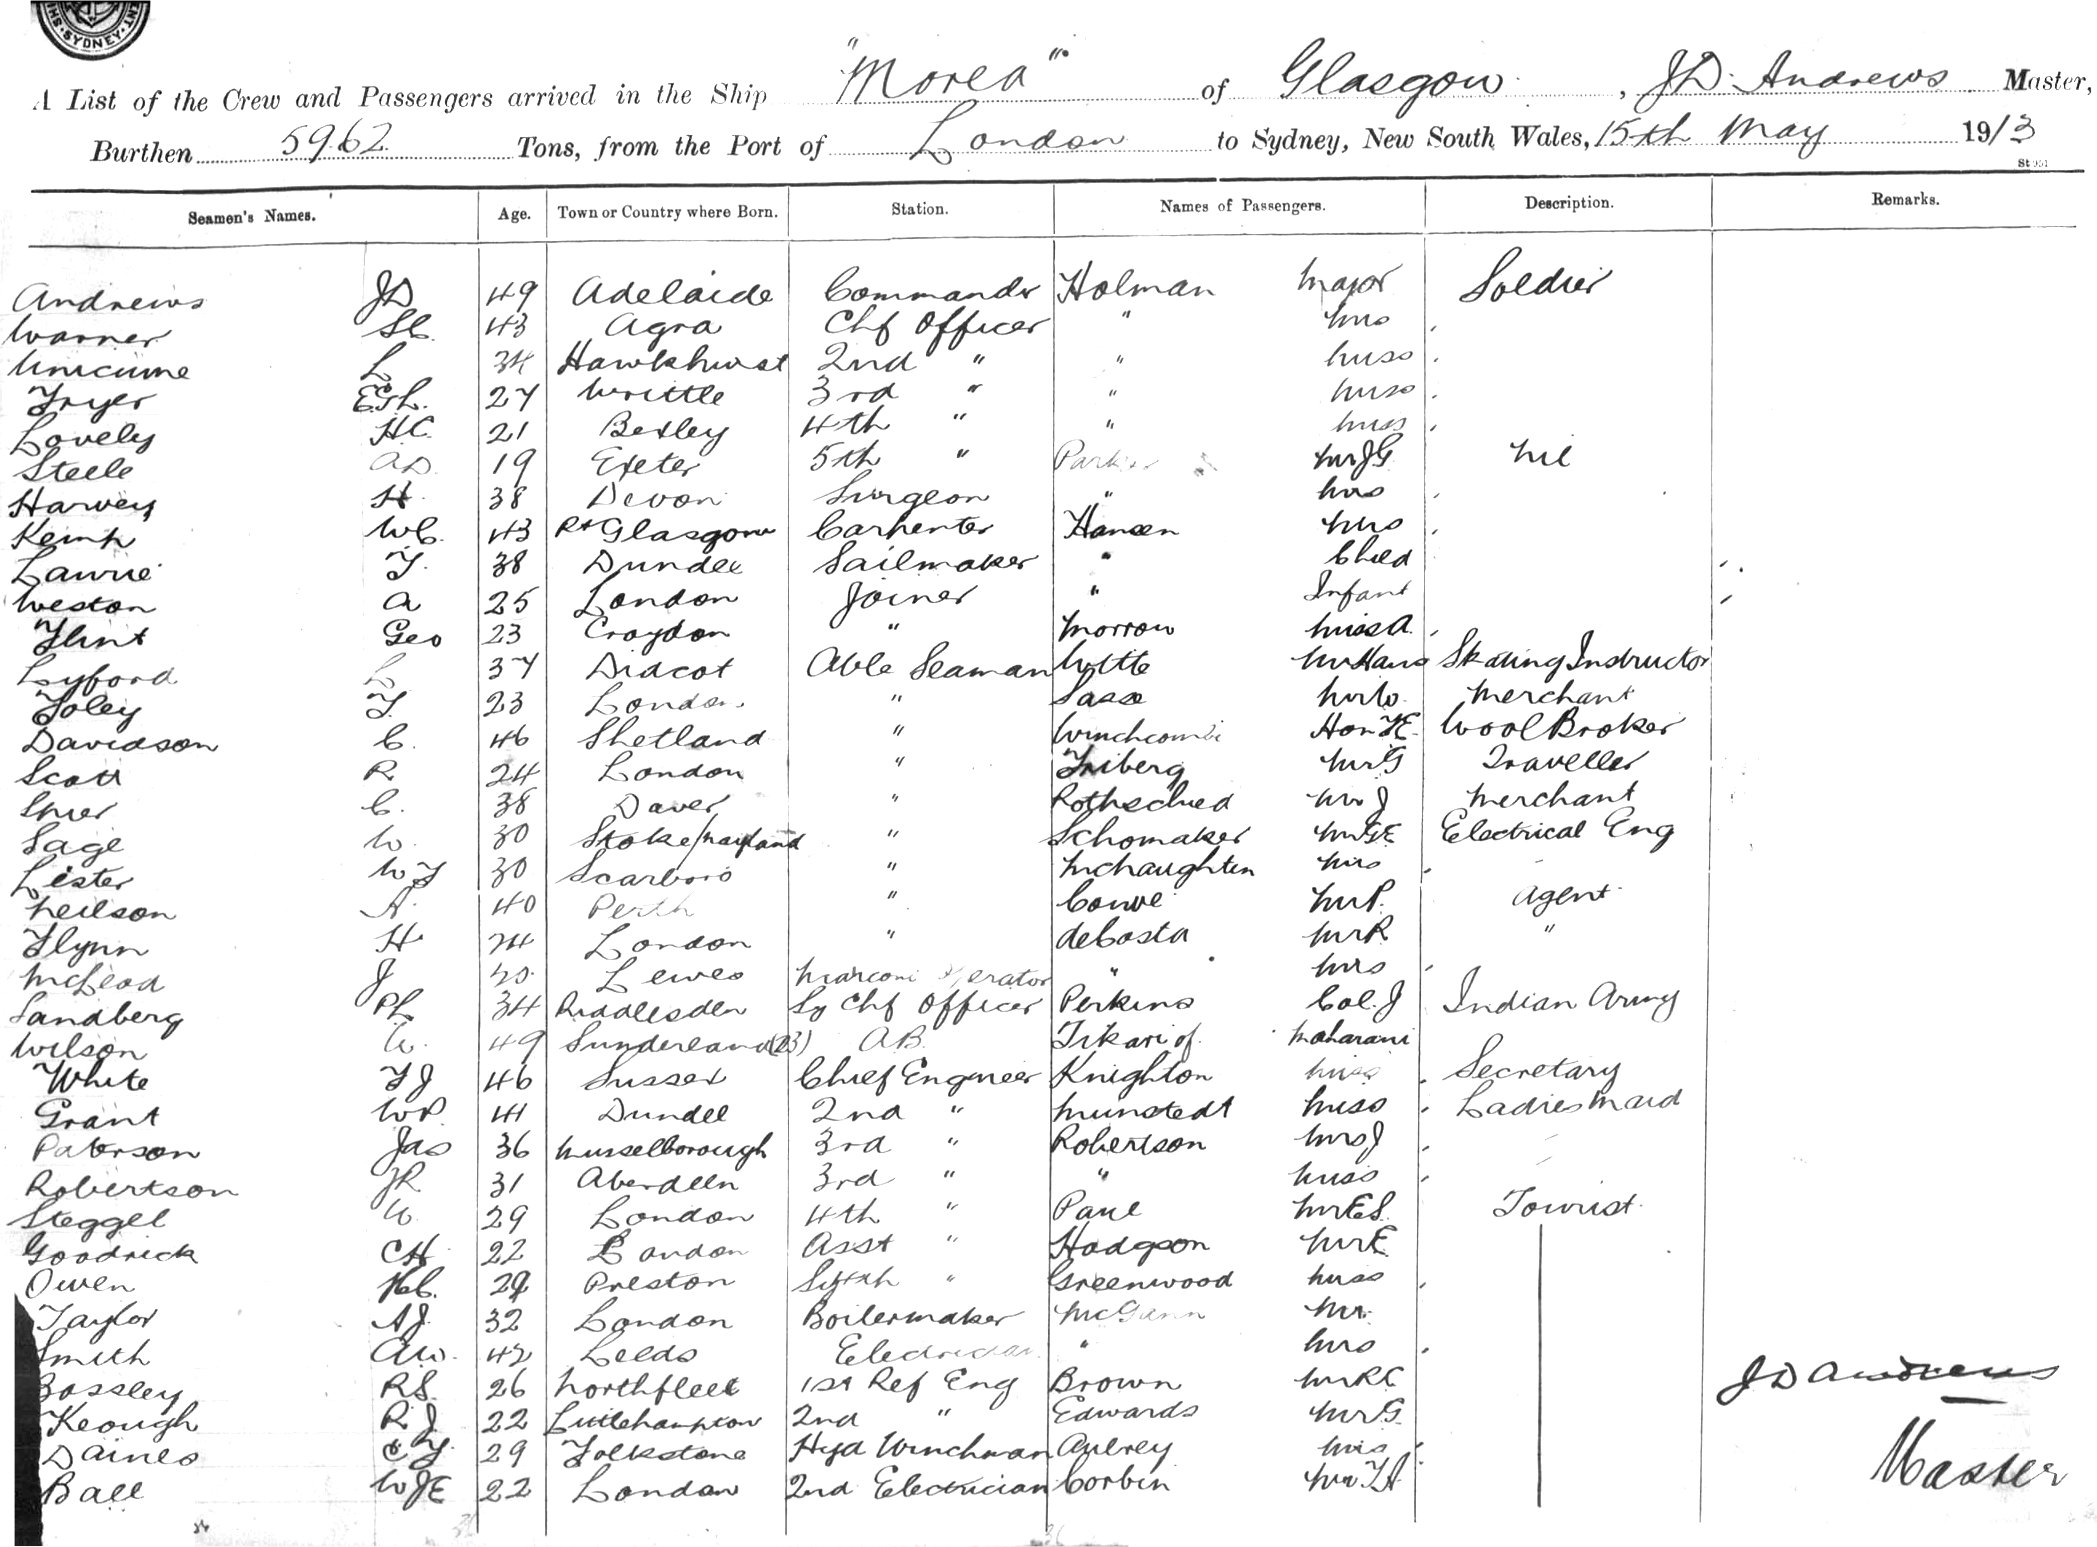 SYDNEY
A List of the Crew and Passengers arrived in the Ship "Morea" of Glasgow, JD Andrews Master,
Burthen 5962 Tons, from the Port of London to Sydney, New South Wales, 15th May 1913
Seamen's Names. Age. Town or Country where Born. Station. Names of Passengers. Description. Remarks.
Andrews JD 49 Adelaide Commander Holman Major Soldier
Warner 43 Agra Chf Officer " Mrs
Unicume L 34 Hawkhurst 2nd " " Miss
Fryer 27 Writtle 3rd " " Miss
Lovely HC 21 Bexley 4th " " Miss
Steele AD 19 Exeter 5th " Parker Mr JG Nil
Harvey H 38 Devon Surgeon " Mrs
Kemp WC 43 Pt Glasgow Carpenter Hansen Mrs
Lawrie T. 38 Dundee Sailmaker " Child
Weston A 25 London Joiner " Infant
Flint Geo 23 Croydon " Morrow Miss A.
Lyford L 37 Didcot Able Seaman Witte Mr Hans Skating Instructor
Foley T. 23 London " Sasse Mr W. Merchant
Davidson C. 46 Shetland " Winchcombe Hon FE Wool Broker
Scott R 24 London " Friberg Mr G Traveller
C. 38 Dover " Rothschild Mr J Merchant
Sage W. 30 Stoke " Schomaker Mr GE Electrical Eng
Lester WJ 30 Scarboro " McNaughten Mrs
Neilson A. 40 Perth " Mr P. Agent
Flynn H 24 London " deCosta Mr R "
McLeod J Lewes Marconi Operator " Mrs
Sandberg PL 34 Riddlesden Sy Chf Officer Perkins Col. J Indian Army
Wilson W. 49 Sunderland (23) AB. Tikari of Maharani
White FJ 46 Sussex Chief Engineer Knighton Miss Secretary
Grant WP. 41 Dundee 2nd " Munstedt Miss Ladies Maid
Paterson Jas 36 Musselborough 3rd " Robertson Mrs J
Robertson JR 31 Aberdeen 3rd " " Miss
Steggel W. 29 London 4th " Paul Mr ES. Tourist
Goodrick CH 22 London Asst " Hodgson Mr E
Owen HC. 29 Preston " Greenwood Miss
Taylor AJ. 32 London Boilermaker McGann Mr.
Smith AW. 42 Leeds Electrician " Mrs
Bossley RS. 26 Northfleet 1st Ref Eng Brown Mr RC
Keough R J. 22 Littlehampton 2nd " Edwards Mr G.
Daines 29 Folkstone Hyd Winchman Aubrey
Ball WJE 22 London 2nd Electrician Corbin
JD Andrews
Master